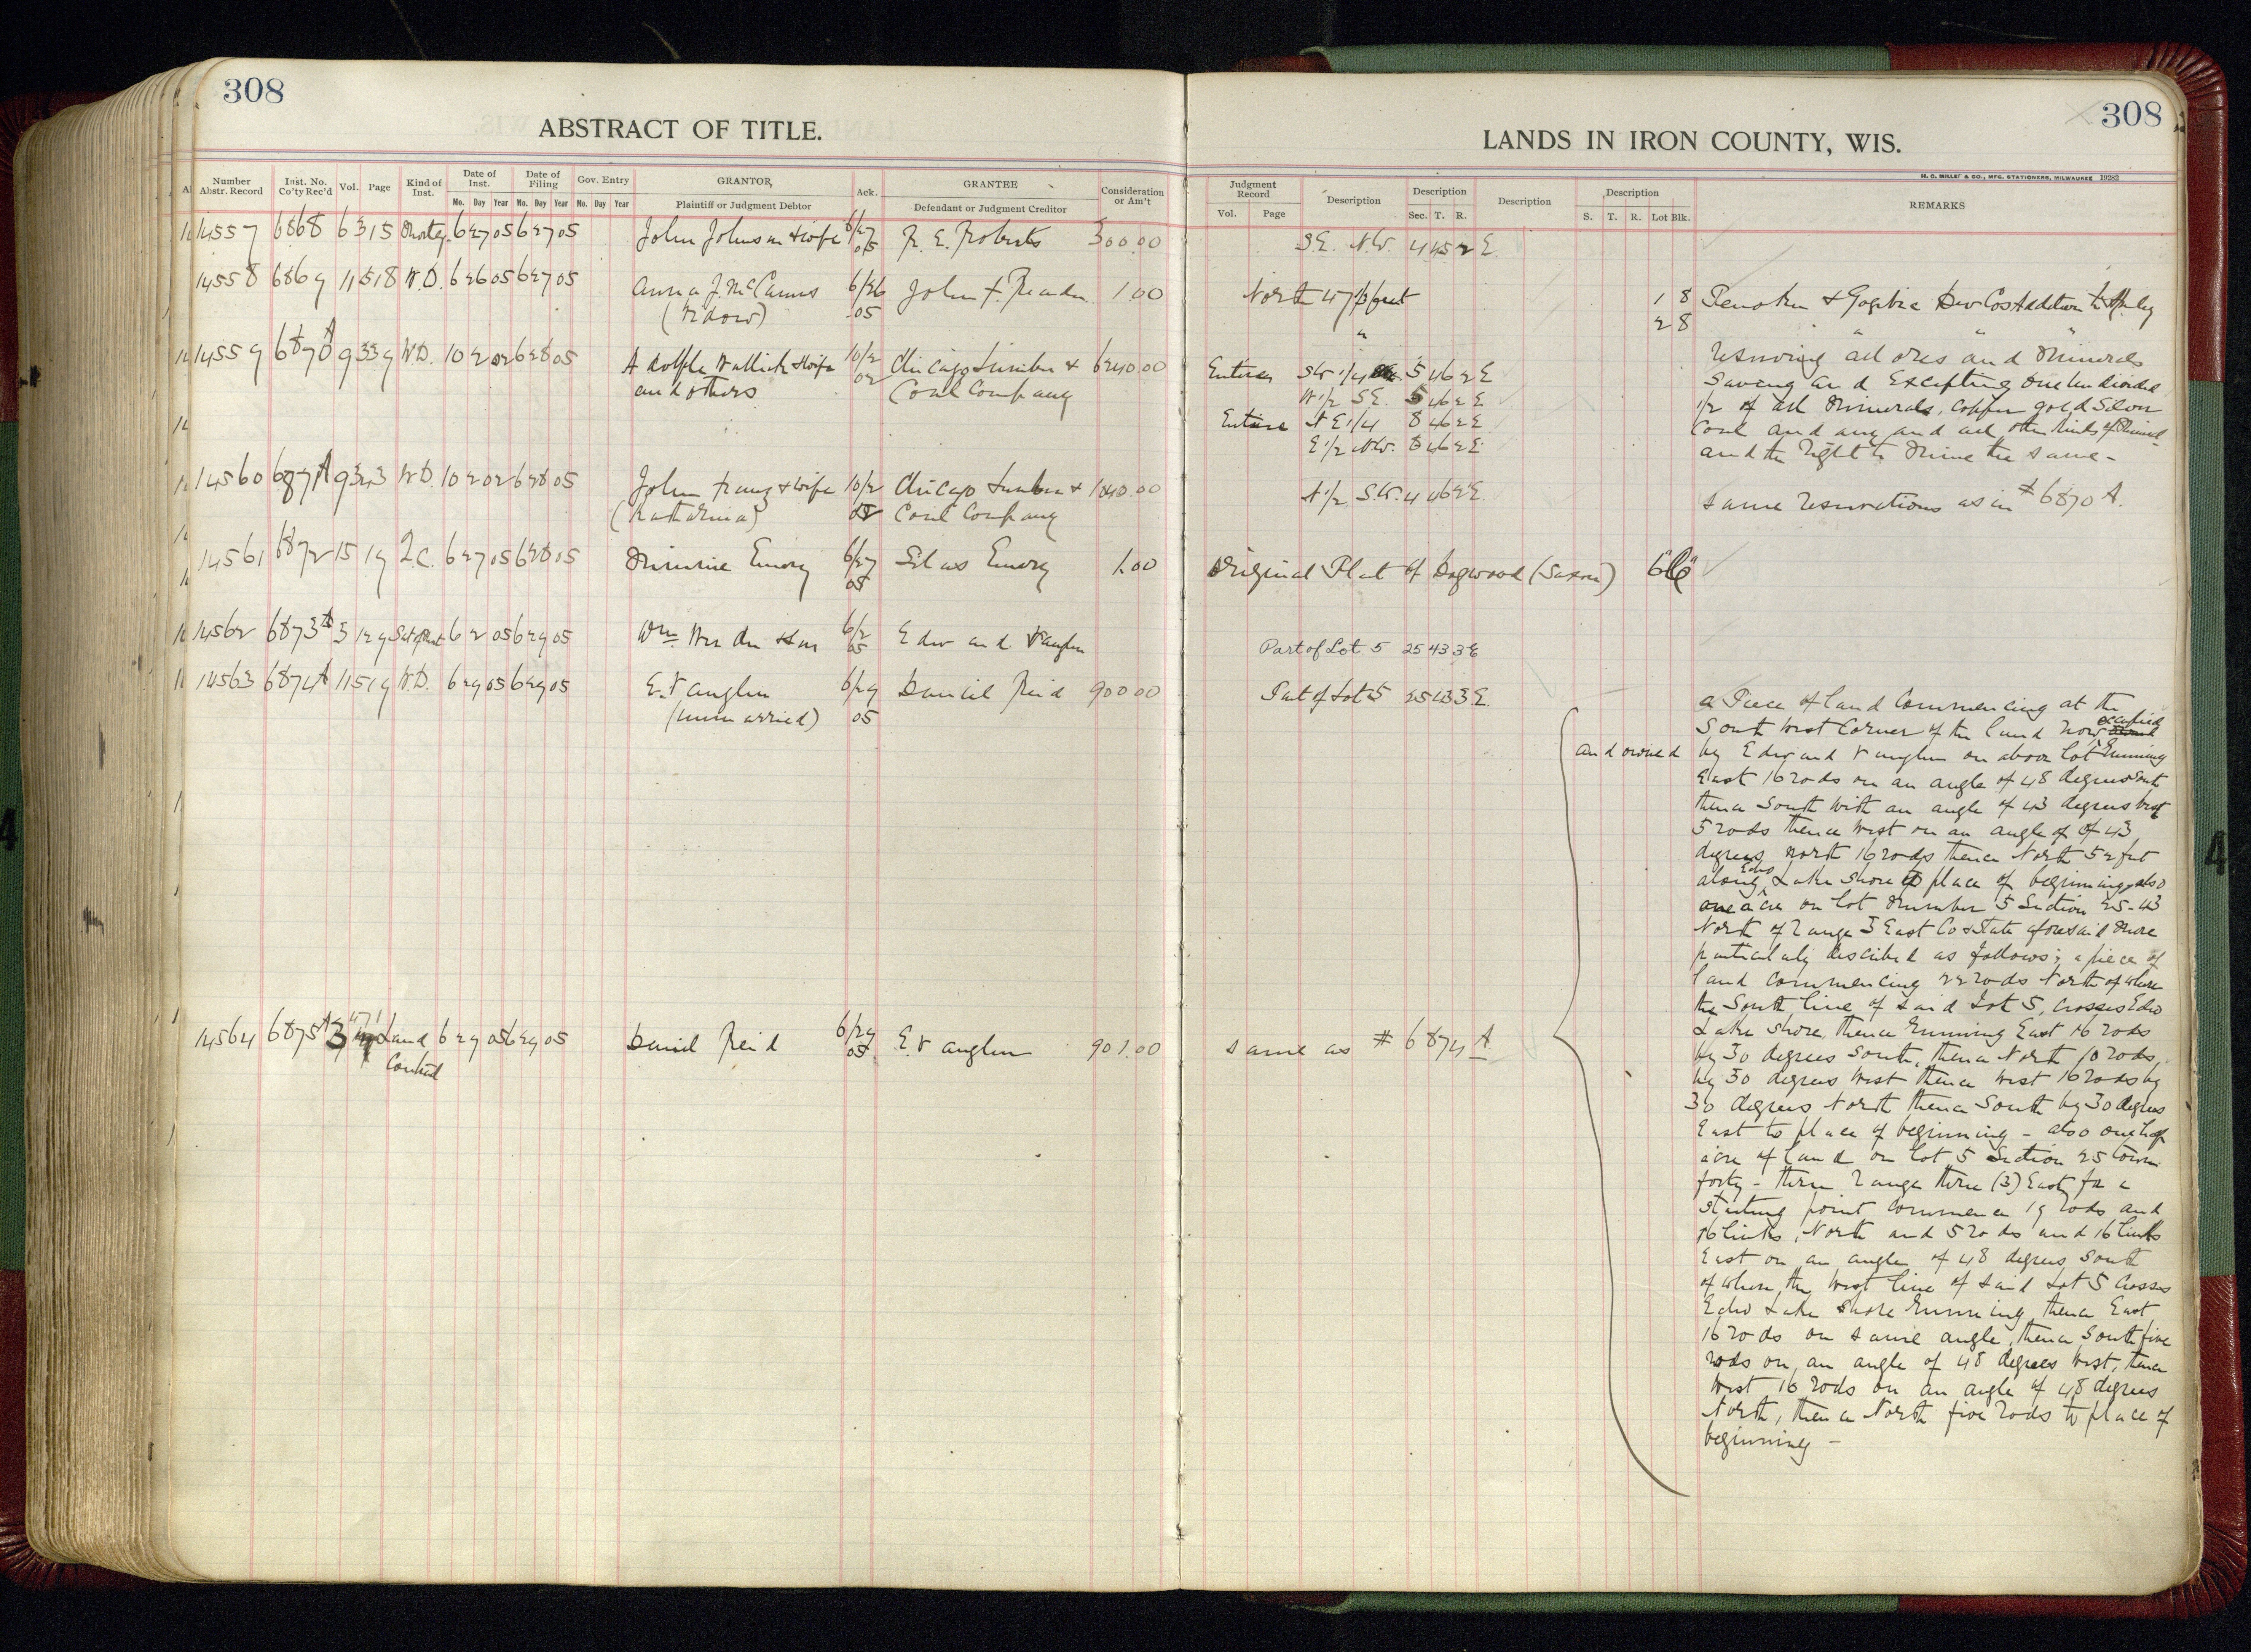 308
ABSTRACT OF TITLE.
Number Abstr. Record | Inst. No. Co'ty Rec'd | Vol. | Page | Kind of Inst. | Date of Inst. Mo. Day Year | Date of Filing Mo. Day Year | Gov. Entry Mo. Day Year | GRANTOR, Plaintiff or Judgment Debtor | Ack. | GRANTEE Defendant or Judgment Creditor | Consideration or Am't
14557 6868 6 315 Mortg. 6 27 05 6 27 05 John Johnson & wife 6/27 05 F. E. Roberts 300.00
14558 6869 11 518 W.D. 6 26 05 6 27 05 Anna J. McCanns 6/26 John F. 1.00
(widow) 05
14559 6870 A 9 339 W.D. 10 2 02 6 28 05 Adolph & wife 10/2 Chicago Lumber & 6240.00
and others 02 Coal Company
14560 6871 A 9 343 W.D. 10 2 02 6 28 05 John Franz & wife 10/2 Chicago Lumber & 1040.00
(Katharina) 02 Coal Company
14561 6872 15 19 Q.C. 6 27 05 6 28 05 Minnie Emory 6/27 Silas Emory 1.00
05
14562 6873 A 3 129 6 2 05 6 29 05 Wm 6/2 Edward Vaughn
05
14563 6874 A 11 519 W.D. 6 29 05 6 29 05 E. Vaughn 6/29 Daniel Reid 900.00
(unmarried) 05
14564 6875 A 3 471 Land 6 29 05 6 29 05 Daniel Reid 6/29 E. Vaughn 901.00
Contract 05
308
LANDS IN IRON COUNTY, WIS.
H. C. MILLER & CO., MFG. STATIONERS, MILWAUKEE 19282
Judgment Record Vol. Page | Description | Description Sec. T. R. | Description | Description S. T. R. Lot Blk. | REMARKS
S.E. N.W. 4 45 2 E
North 47 feet 1 8 Penokee & Gogebic Dev Cos Addition to Hurley
" 2 8 " " "
Entire SW 1/4 5 46 2 E reserving all ores and minerals
W 1/2 S.E. 5 46 2 E saving and excepting one undivided
Entire N E 1/4 8 46 2 E 1/2 of all minerals, copper gold silver
E 1/2 N.W. 8 46 2 E coal and any and all other kinds of mineral
and the right to mine the same -
N 1/2 S.W. 4 46 2 E. same reservations as in # 6870 A.
Original Plat of Dogwood (Saxon) 6 "6"
Part of Lot 5 25 43 3 E
Part of Lot 5 25 43 3 E.
a Piece of land commencing at the
South West corner of the land now occupied
and owned by Edward Vaughn on above lot Running
East 16 rods on an angle of 48 degrees South
thence South with an angle of 43 degrees West
5 rods thence West on an angle of of 43
degrees North 16 rods thence North 52 feet
along Echo Lake shore to place of beginning, also
one acre on lot number 5 Section 25-43
North of Range 3 East Co & State aforesaid more
particularly described as follows; a piece of
land commencing 22 rods North of where
the South line of said Lot 5, crosses Echo
Lake shore, thence Running East 16 rods
by 30 degrees South, thence North 10 rods
by 30 degrees West thence West 16 rods by
30 degrees North thence South by 30 degrees
East to place of beginning - also one half
acre of land on lot 5 Section 25 town
forty - three Range three (3) East, for a
starting point commence 19 rods and
16 links, North and 5 rods and 16 links
East on an angle of 48 degrees South
of where the West line of said Lot 5 crosses
Echo Lake shore Running thence East
16 rods on same angle, thence South five
rods on an angle of 48 degrees West, thence
West 16 rods on an angle of 48 degrees
North, thence North five rods to place of
beginning -
same as # 6874 A.